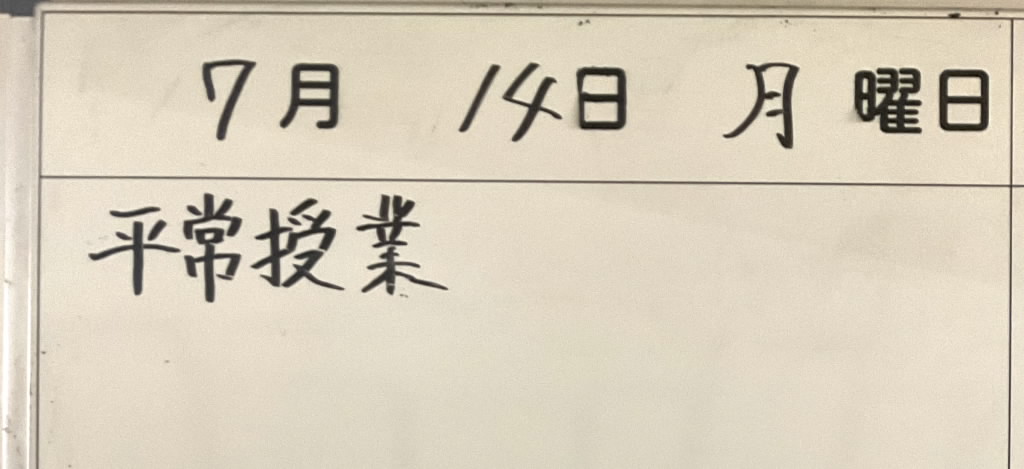 7月 14日 月曜日
平常授業